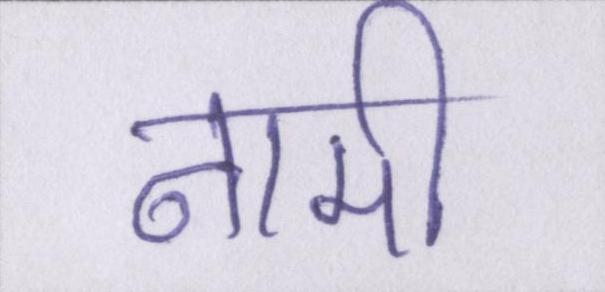 नामी